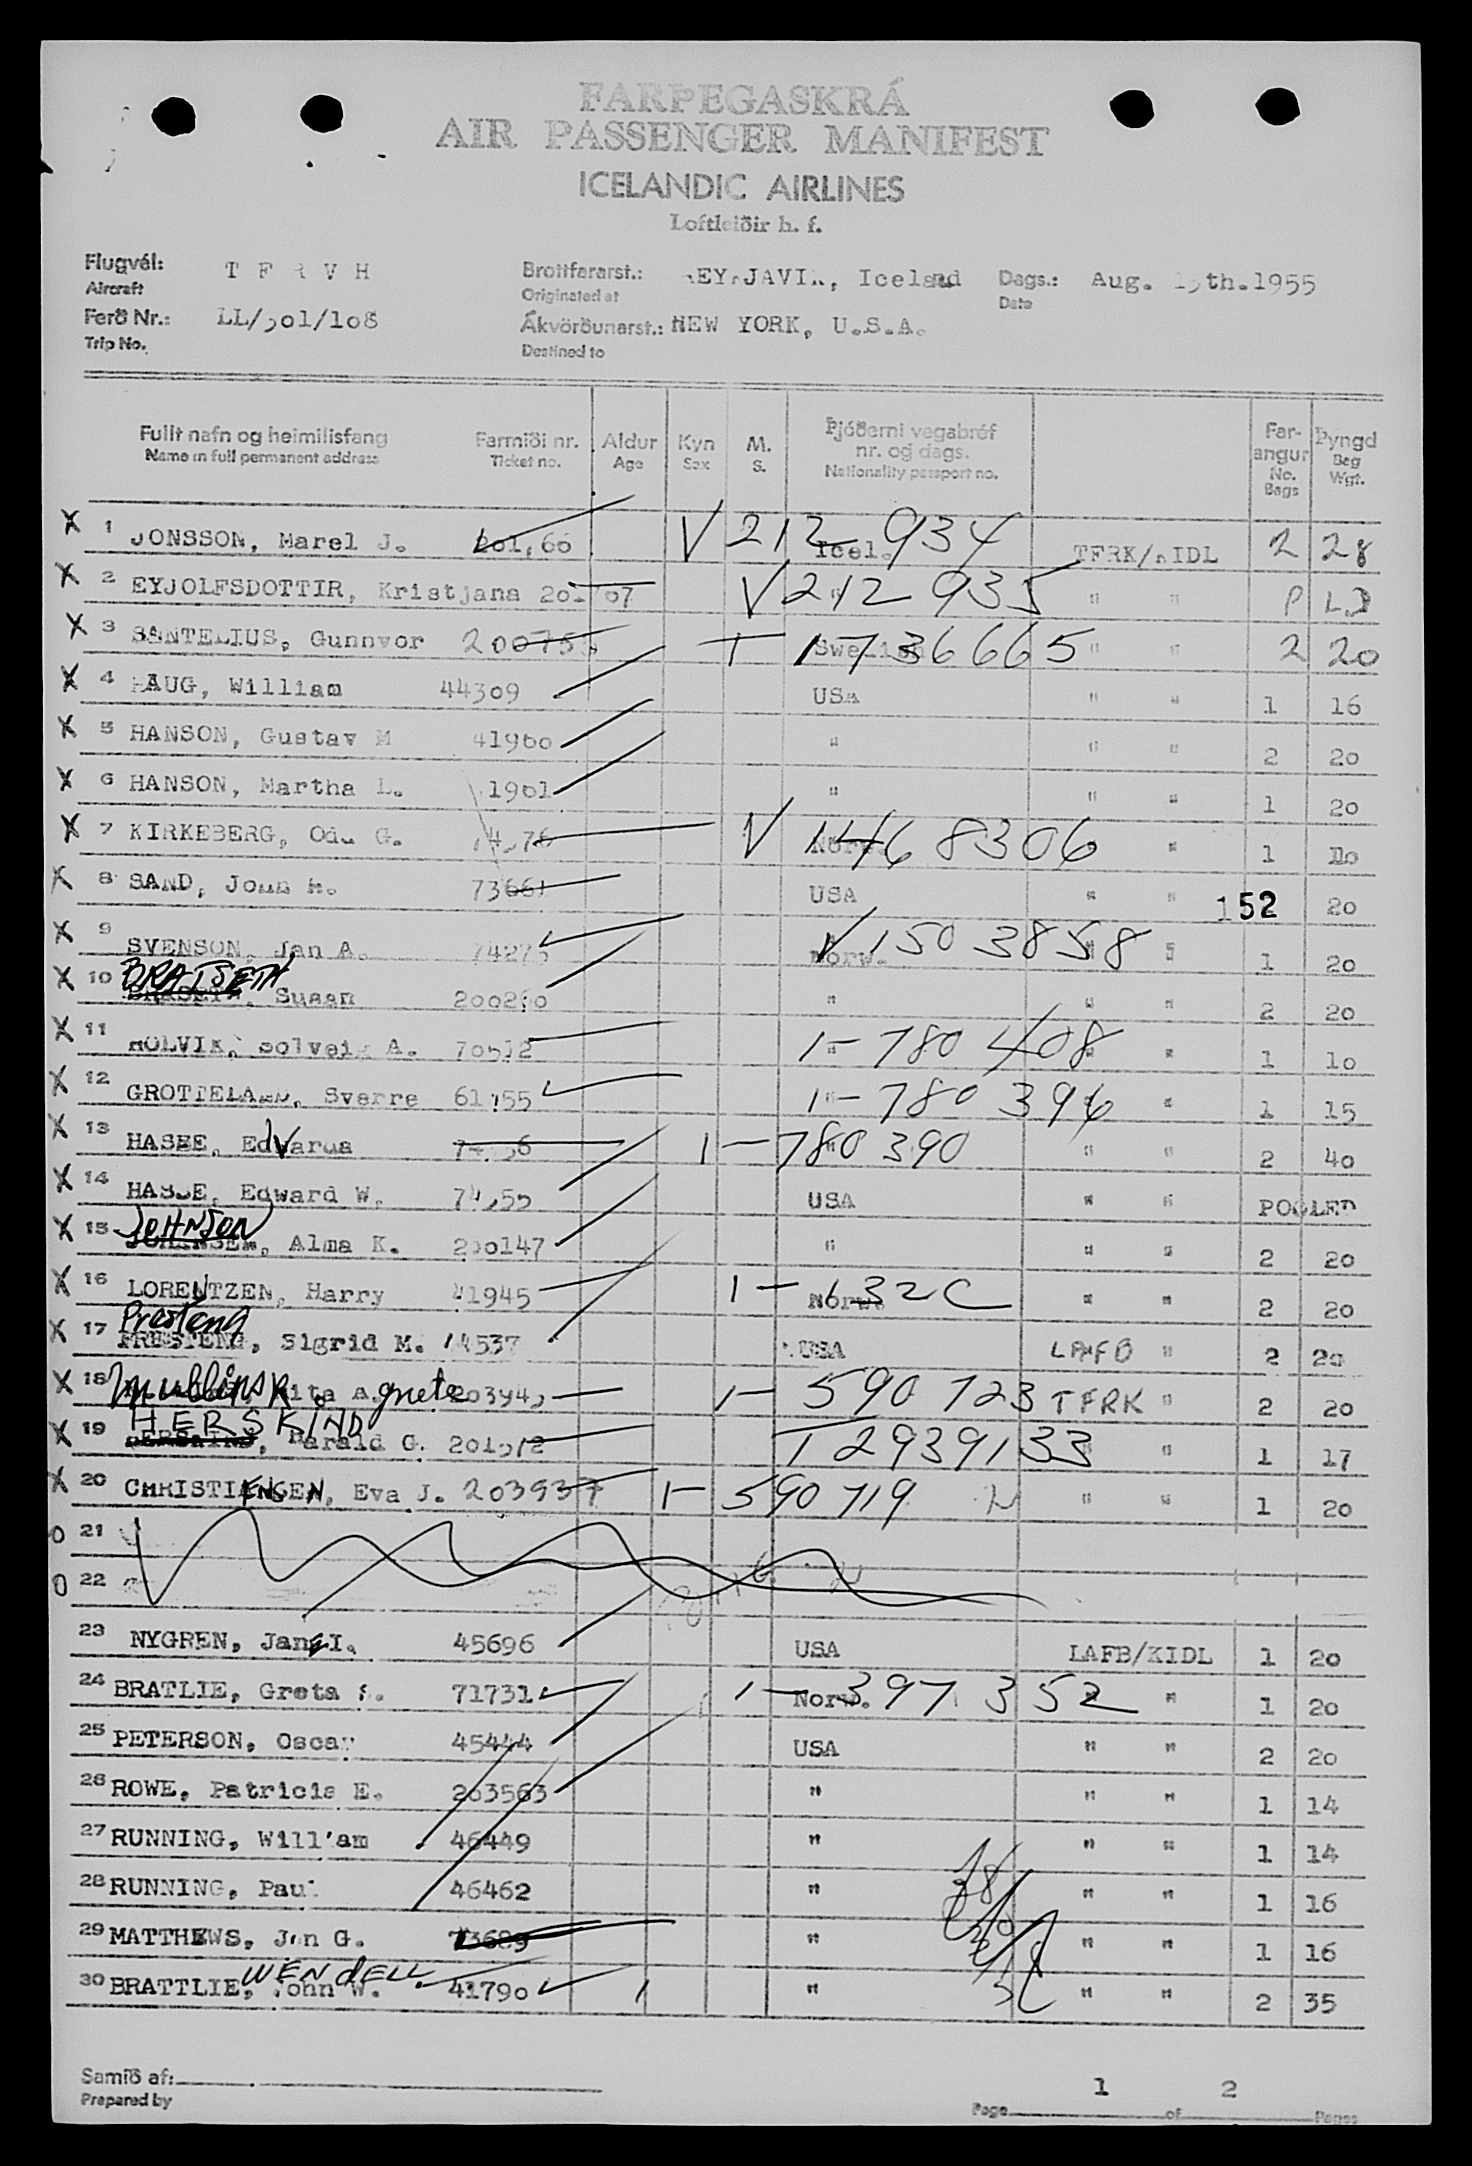 FARÞEGASKRÁ
AIR PASSENGER MANIFEST
ICELANDIC AIRLINES
Loftleiðir h. f.
Flugvél: T F R V H Brottfararst.: REYKJAVIK, Iceland Dags.: Aug. th.1955
Aircraft Originated at Date
Ferð Nr.: LL/ 01/108 Ákvörðunarst.: NEW YORK, U.S.A.
Trip No. Destined to
Fullt nafn og heimilisfang Farmiði nr. Aldur Kyn M. Þjóðerni vegabréf nr. og dags. Farangur Þyngd
Name in full permanent address Ticket no. Age Sex S. Nationality passport no. No. Bags Bag Wgt.
X 1 JONSSON, Marel J. V 212 934 Icel. TFRK/KIDL 2 28
X 2 EYJOLFSDOTTIR, Kristjana V 212 935 " " "
X 3 SANTELIUS, Gunnvor T 1736665 " " 2 20
X 4 HAUG, William 44309 USA " " 1 16
X 5 HANSON, Gustav M 41960 " " " 2 20
X 6 HANSON, Martha L. " " " 1 20
X 7 KIRKEBERG, G. V 1468306 Norw. " 1
X 8 SAND, John 73661 USA " " 152 20
X 9 SVENSON, Jan A. 74275 V 1503858 Norw. " " 1 20
X 10 BRATSETH Susan " " " 2 20
X 11 HOLVIK, Solveig A. 1-780408 " " " 1 10
X 12 Sverre 1-780394 " " " 1 15
X 13 1-780390 " " " 2 40
X 14 Edward W. USA " " POOLED
X 15 JOHNSON Alma K. 200147 " " " 2 20
X 16 LORENTZEN, Harry 41945 1-632C Norw. " " 2 20
X 17 Presteng PRESTENG, Sigrid M. 14537 USA LAFB " 2 20
X 18 1-590723 TFRK " 2 20
X 19 HERSKIND, Harald G. T2939133 " " 1 17
X 20 CHRISTIENSEN, Eva J. 203937 1-590719 " " 1 20
0 21
0 22
23 NYGREN, Jane I. 45696 USA LAFB/KIDL 1 20
24 BRATLIE, Greta 71731 1-397352 Norw. " " 1 20
25 PETERSON, Oscar 45444 USA " " 2 20
26 ROWE, Patricia E. 203563 " " " 1 14
27 RUNNING, William 46449 " " " 1 14
28 RUNNING, Paul 46462 " " " 1 16
29 MATTHEWS, Jon G. 73689 " " " 1 16
WENDELL
30 BRATTLIE, John W. 41790 " " " 2 35
Samið af:
Prepared by Page 1 of 2 Pages